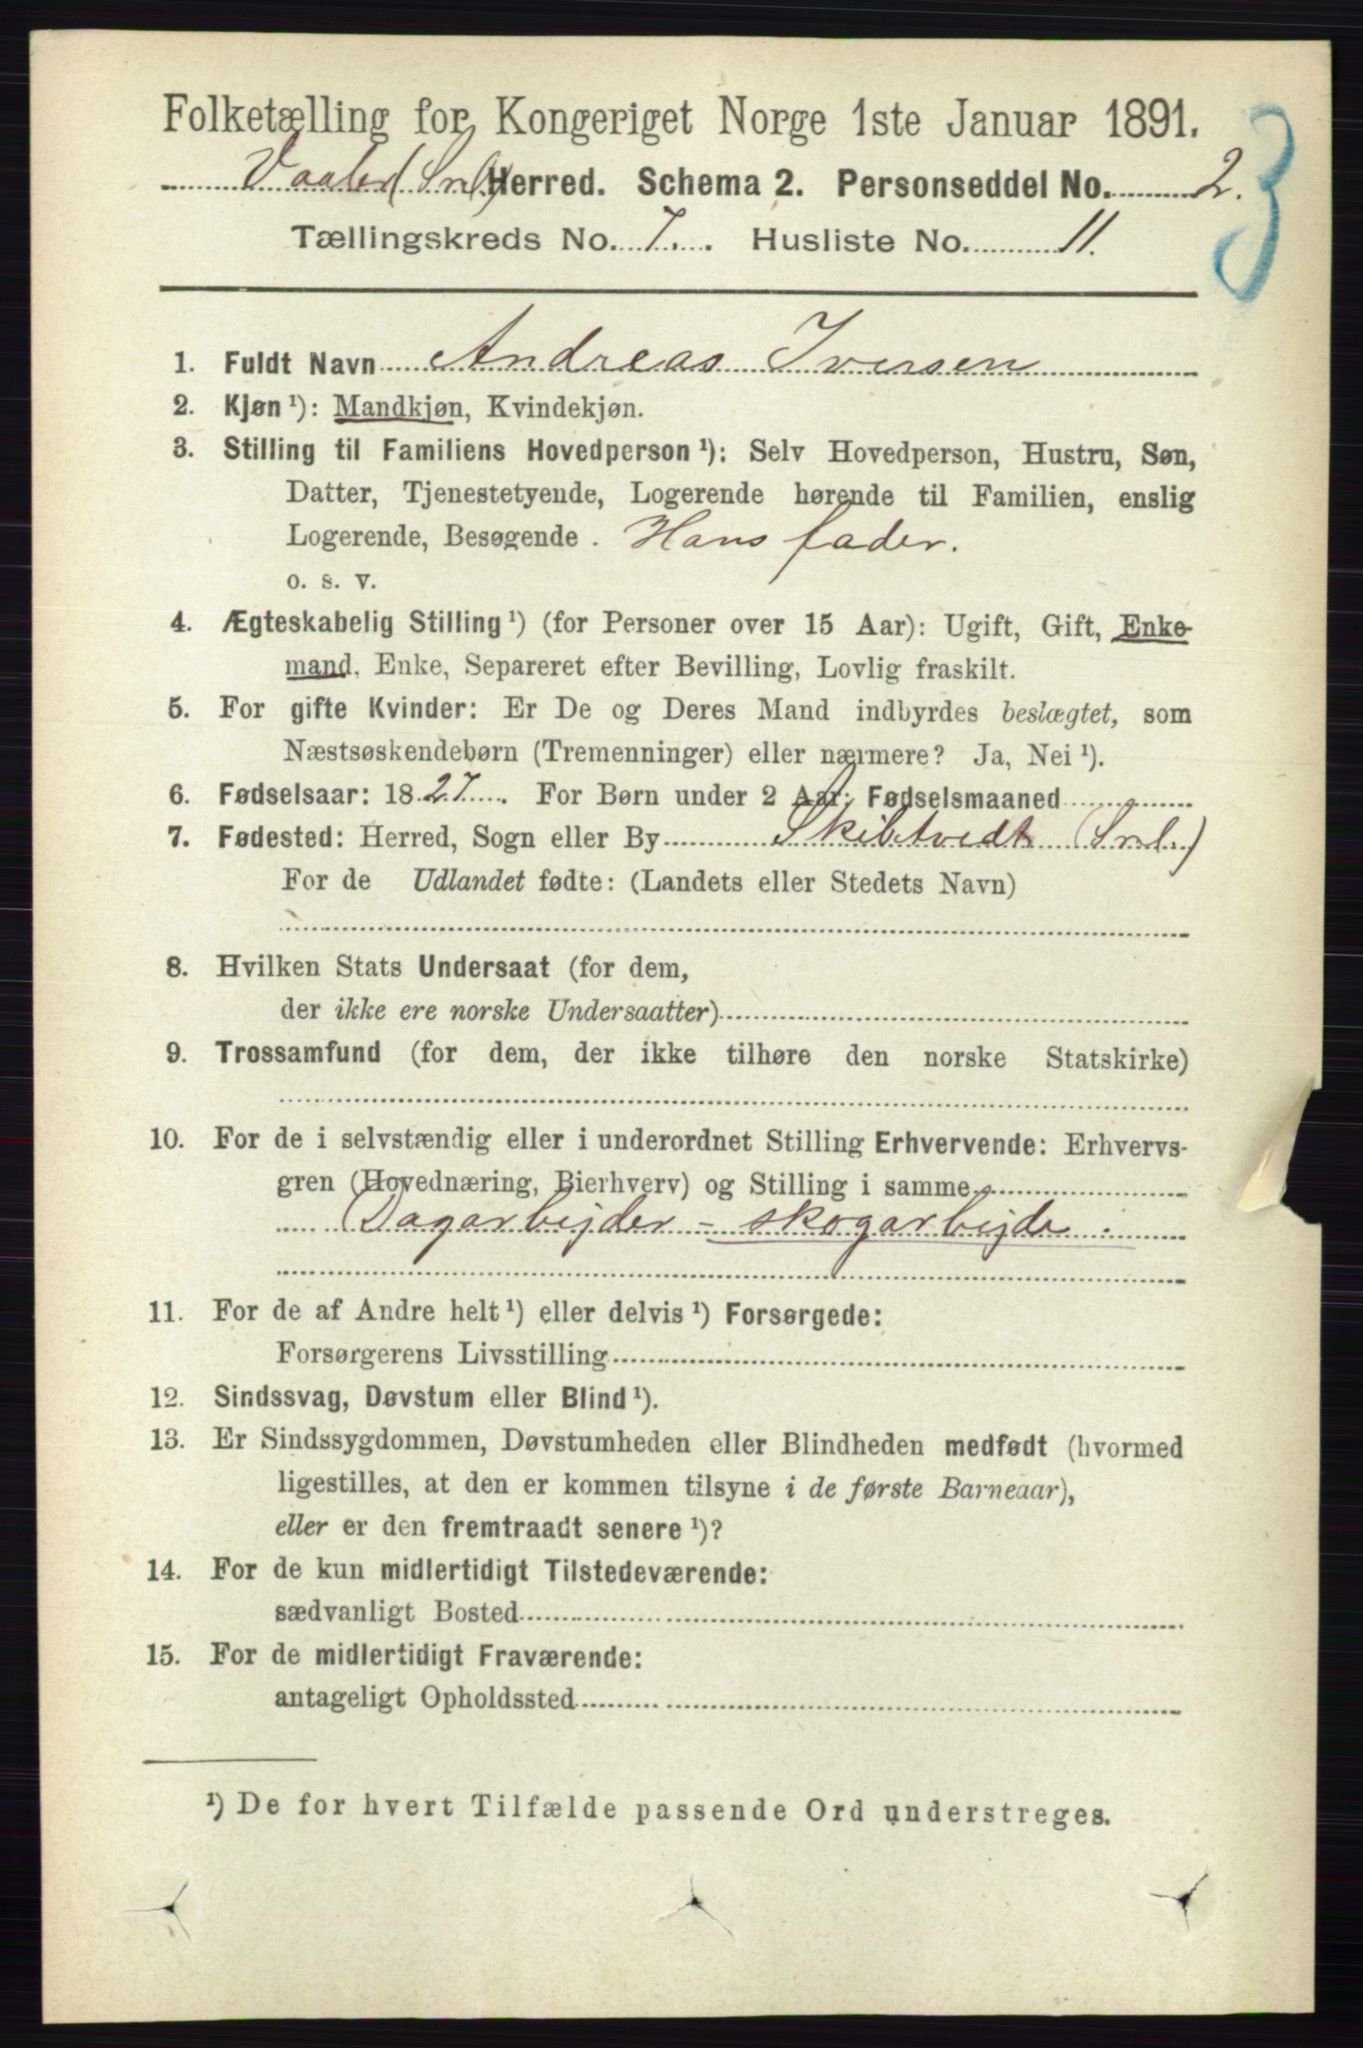 Folketælling for Kongeriget Norge 1ste Januar 1891.
Vaaler (Snl.) Herred. Schema 2. Personseddel No. 2.
3
Tællingskreds No. 7. Husliste No. 11.
1. Fuldt Navn Andreas Iversen
2. Kjøn ¹): Mandkjøn, Kvindekjøn.
3. Stilling til Familiens Hovedperson ¹): Selv Hovedperson, Hustru, Søn,
Datter, Tjenestetyende, Logerende hørende til Familien, enslig
Logerende, Besøgende . Hans fader.
o. s. v.
4. Ægteskabelig Stilling ¹) (for Personer over 15 Aar): Ugift, Gift, Enke-
mand, Enke, Separeret efter Bevilling, Lovlig fraskilt.
5. For gifte Kvinder: Er De og Deres Mand indbyrdes beslægtet, som
Næstsøskendebørn (Tremenninger) eller nærmere? Ja, Nei ¹).
6. Fødselsaar: 1827. For Børn under 2 Aar: Fødselsmaaned
7. Fødested: Herred, Sogn eller By Skibtvedt (Snl.)
For de Udlandet fødte: (Landets eller Stedets Navn)
8. Hvilken Stats Undersaat (for dem,
der ikke ere norske Undersaatter)
9. Trossamfund (for dem, der ikke tilhøre den norske Statskirke)
10. For de i selvstændig eller i underordnet Stilling Erhvervende: Erhvervs-
gren (Hovednæring, Bierhverv) og Stilling i samme
Dagarbejder - skogarbejde .
11. For de af Andre helt ¹) eller delvis ¹) Forsørgede:
Forsørgerens Livsstilling
12. Sindssvag, Døvstum eller Blind ¹).
13. Er Sindssygdommen, Døvstumheden eller Blindheden medfødt (hvormed
ligestilles, at den er kommen tilsyne i de første Barneaar),
eller er den fremtraadt senere ¹)?
14. For de kun midlertidigt Tilstedeværende:
sædvanligt Bosted
15. For de midlertidigt Fraværende:
antageligt Opholdssted
¹) De for hvert Tilfælde passende Ord understreges.